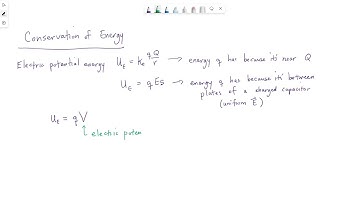 Conservation of Energy
Electric potential energy U_E = k_e qQ/r → energy q has because it's near Q
U_E = qEs → energy q has because it's between
plates of a charged capacitor
(uniform E⃗)
U_E = qV
electric poten